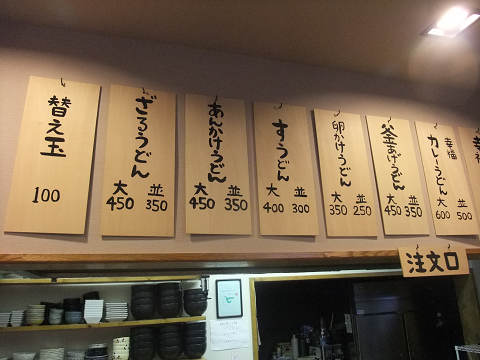 替え玉
100
ざるうどん
大 並
450 350
あんかけうどん
大 並
450 350
すうどん
大 並
400 300
卵かけうどん
大 並
350 250
釜あげうどん
大 並
450 350
幸福
カレーうどん
大 並
600 500
幸福
注文口